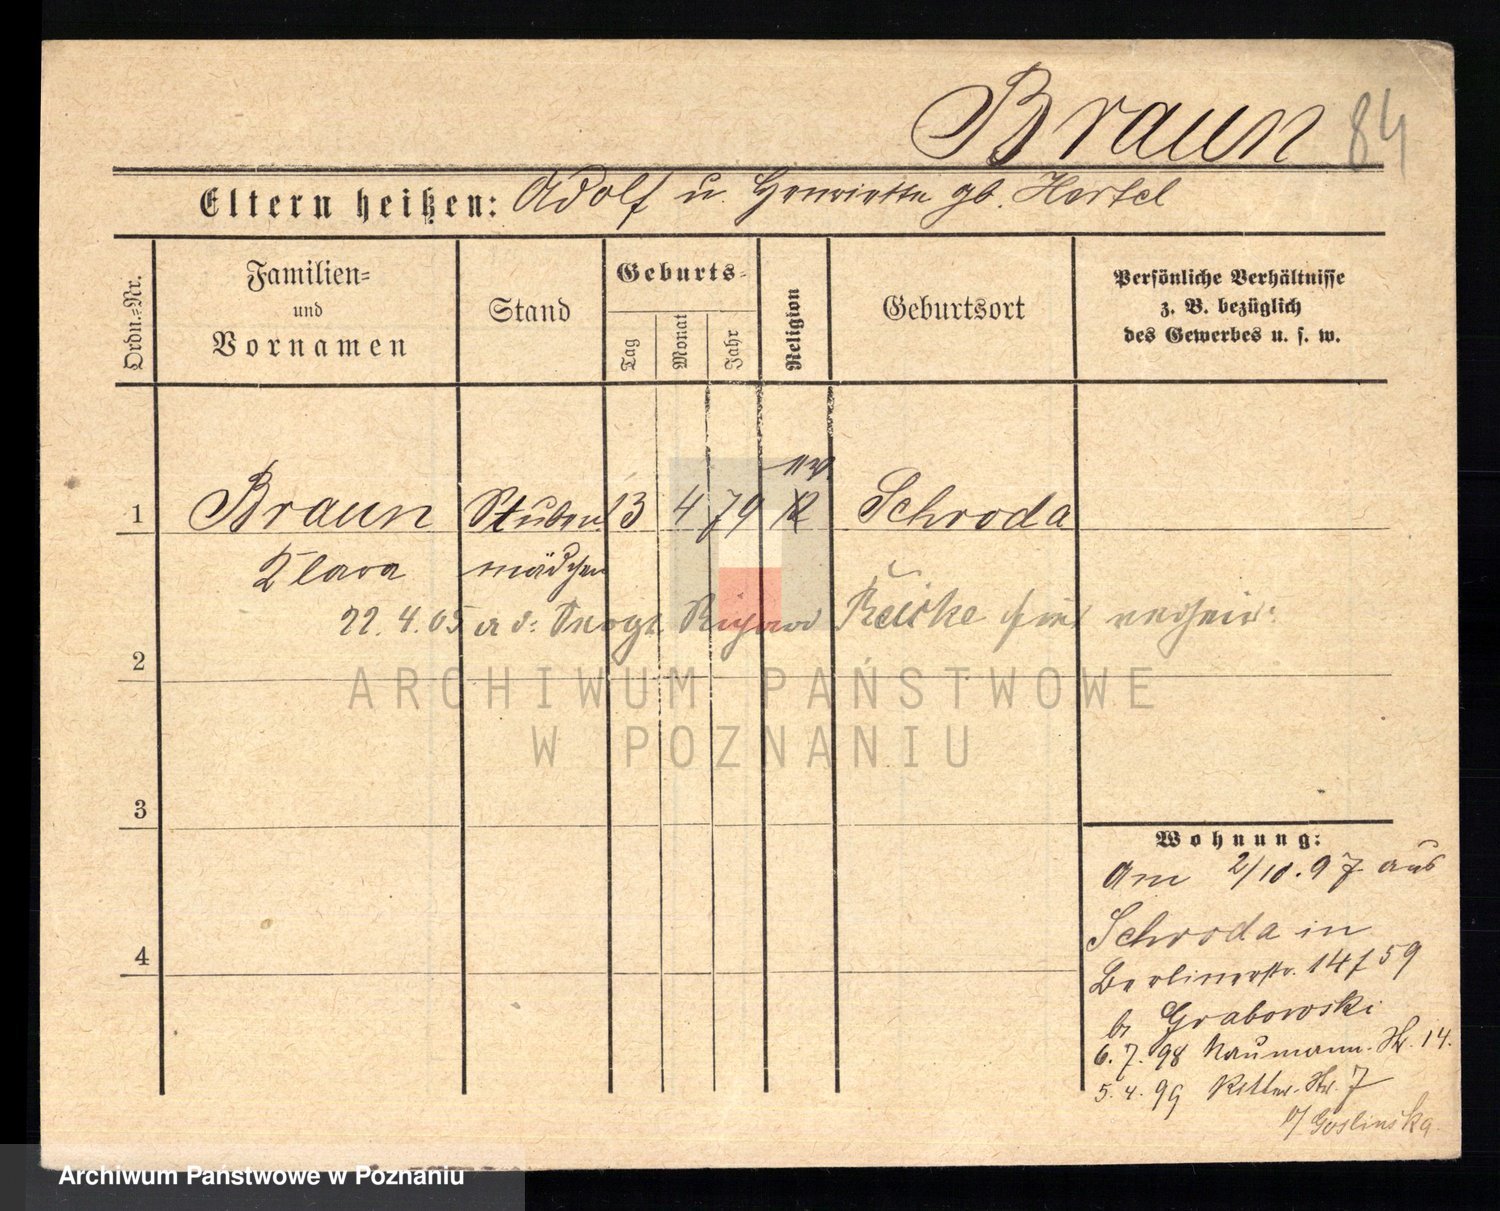 Braun 84
Eltern heißen: Adolf u. Henriette gb. Hertel
Ordn.=Nr.
Familien=
und
Vornamen
Stand
Geburts=
Tag
Monat
Jahr
Religion
Geburtsort
Persönliche Verhältnisse
z. B. bezüglich
des Gewerbes u. s. w.
ev.
1 Braun Stuben 13 4 79 K Schroda
Klara mädchen
22.4.05 a d: Richard hier verheir:
2
ARCHIWUM PAŃSTWOWE
W POZNANIU
3
Wohnung:
Am 2/10.97 aus
Schroda in
4
Berlinerstr. 14 / 59
br Grabowski
6.7.98 Naumann. Str. 14.
5.4.99 Ritter. Str. 7
b/ Goslinska
Archiwum Państwowe w Poznaniu